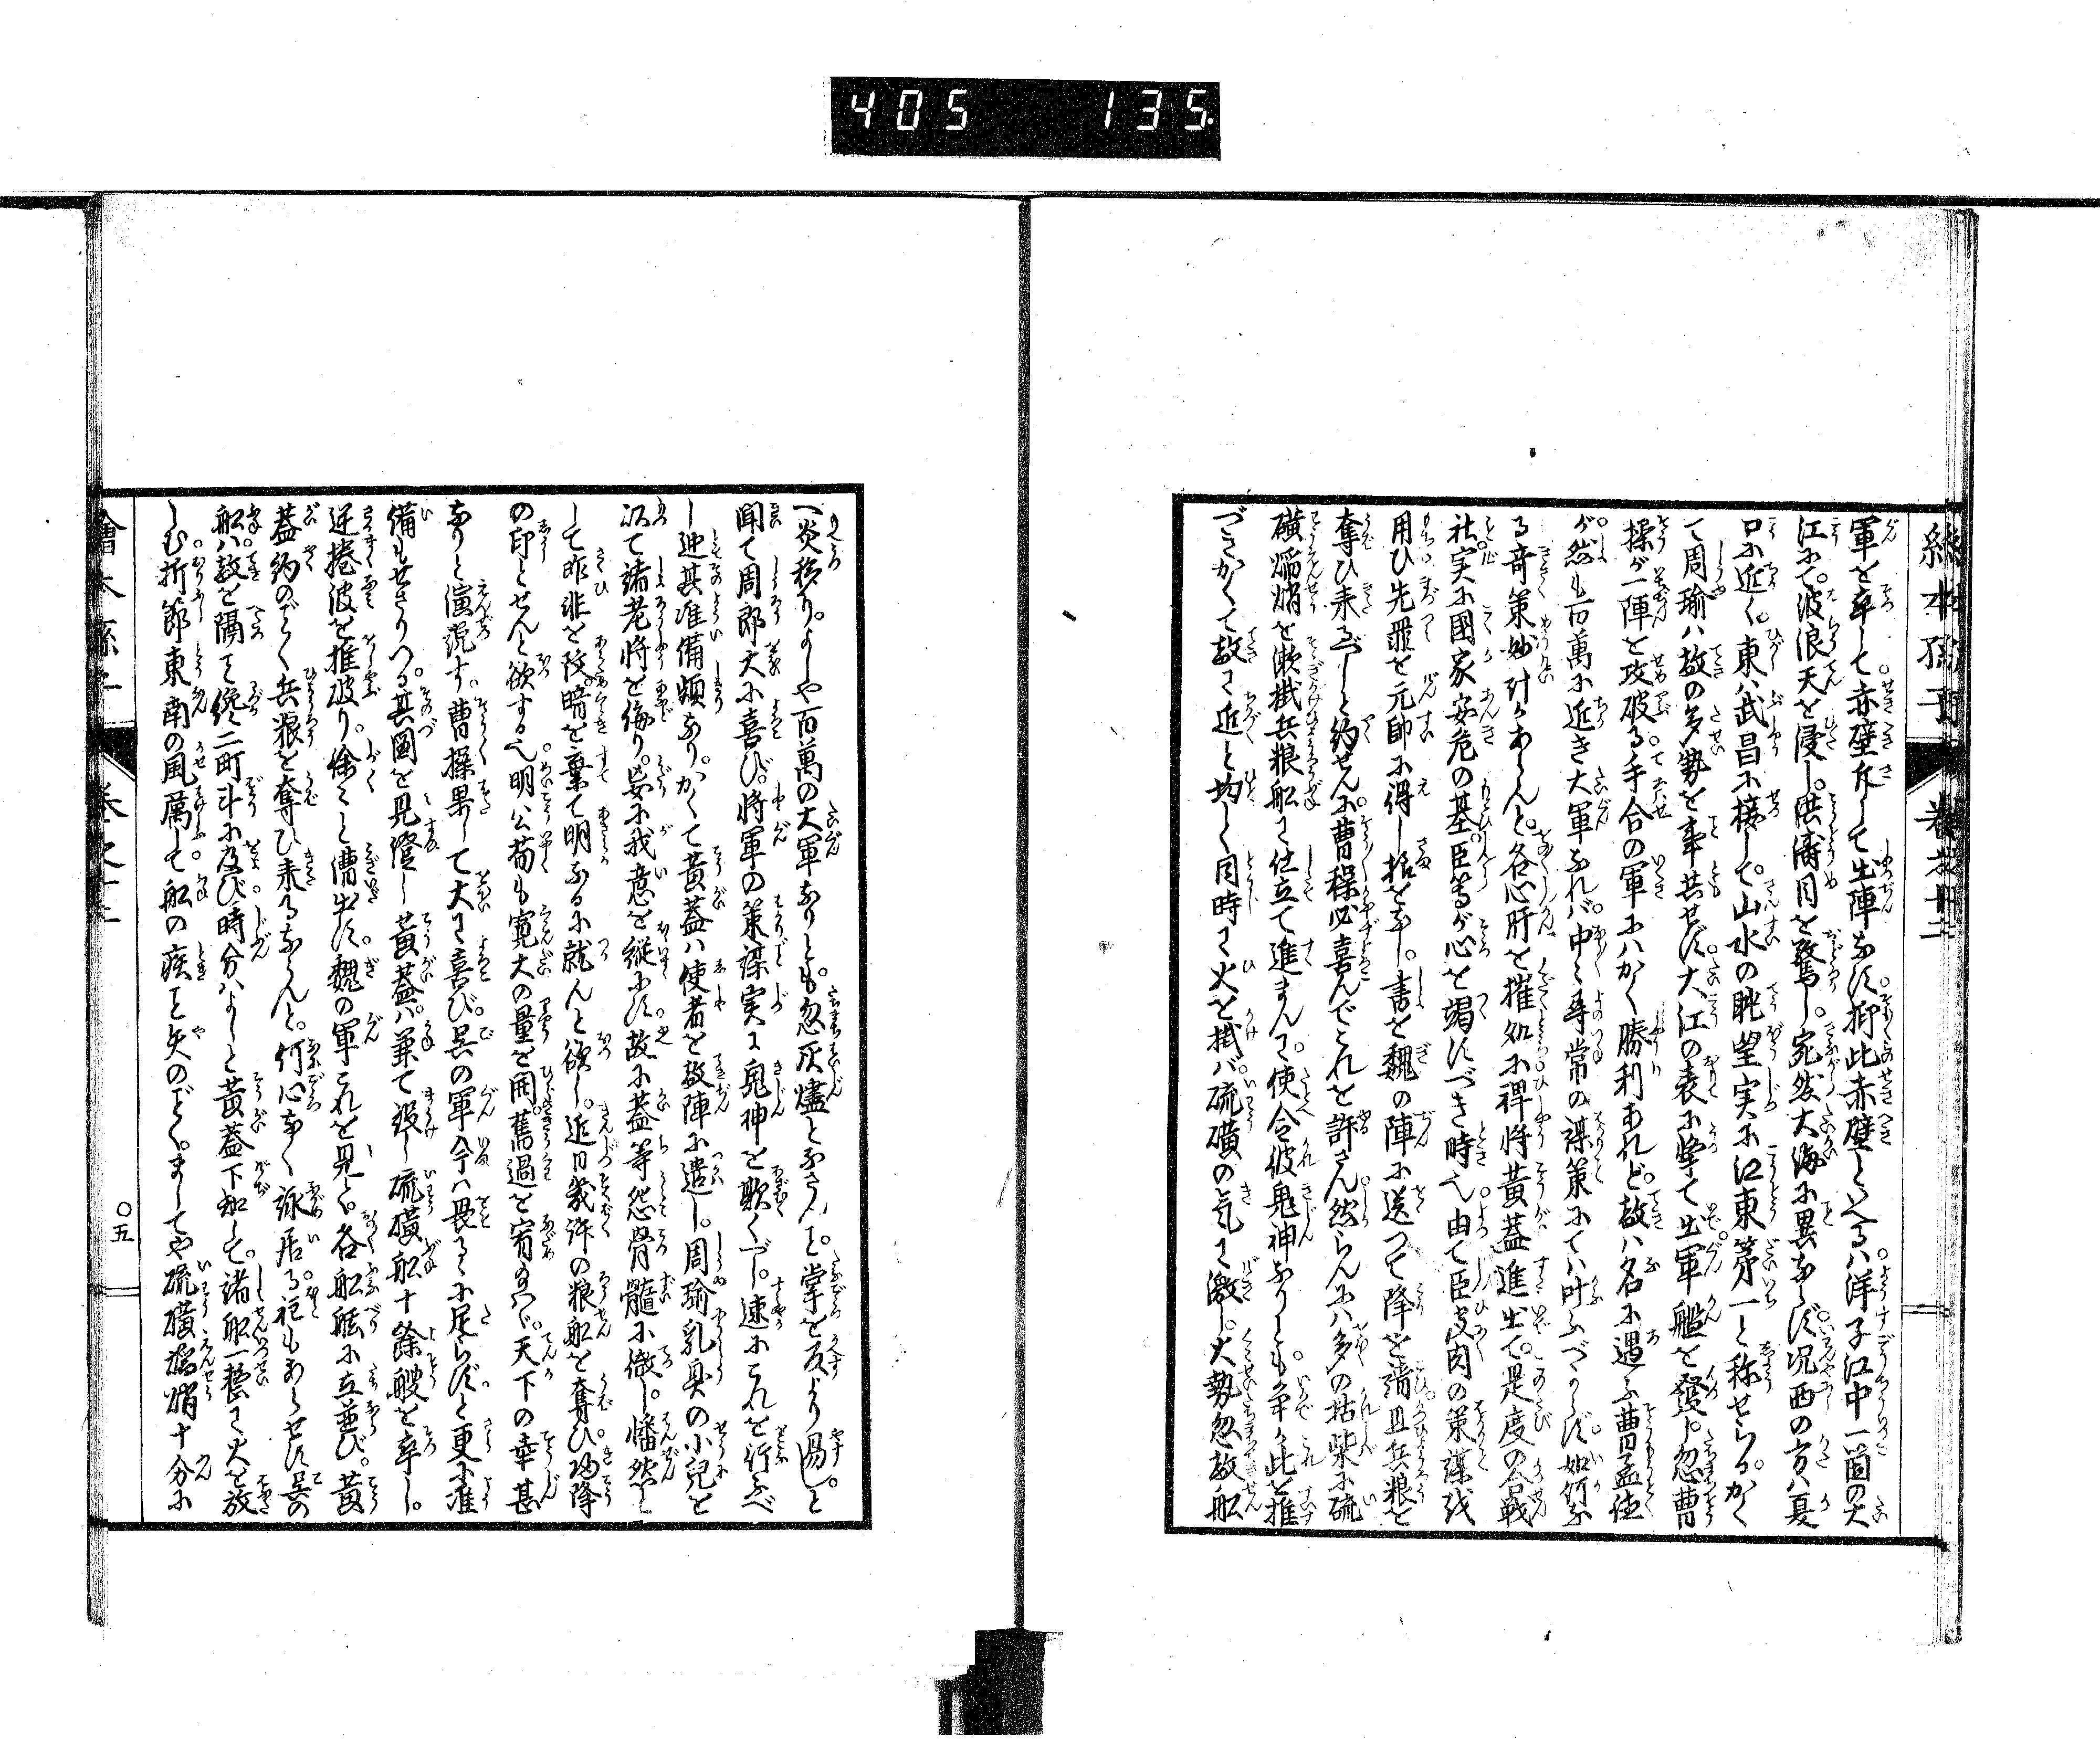 405 135
繪本孫子 卷之十二
軍を卒して赤壁斥して出陣なす。抑此赤壁といへるハ。洋子江中一箇の大
江にて。波浪天を浸し。洪濤目を驚し。宛然大海に異ならず。况西の方ハ夏
口に近く。東ハ武昌に接して。山水の眺望実に江東第一と称せらる。かく
て周瑜ハ敵の多勢を事共せず。大江の表に率て出軍艦を發し。忽曹
操が一陣を攻破る。手合の軍にハかく勝利あれど。敵ハ名に遇ふ曹孟徳
が。然も百萬に近き大軍なれバ。中々尋常の謀策にてハ叶ふべからず。如何な
る奇策妙計かあらんと。各心肝を摧処に。裨將黄蓋進出て。是度の合戰
社。実に國家安危の基。臣等が心を竭すべき時也。由て臣皮肉の策謀を
用ひ。先罪を元帥に得し拵をなし。書を魏の陣に送つて降を請。且兵粮を
奪ひ来るべしと約せんに。曹操必喜んでこれを許さん。然らんにハ多の枯柴に硫
磺焔焇を漱掛。兵粮船に仕立て進まんに。使令彼鬼神なりとも。争か此を推
づさかくて敵に近と均しく同時に火を掛バ。硫磺の気に激し。火勢忽敵船
へ炎移り。よしや百萬の大軍なりとも。忽灰燼となさんこと。掌を反より易しと
聞て周郎大に喜び。將軍の策謀実に鬼神を欺くべし。速にこれを行ふべ
し迚。其准備頻なり。かくて黄蓋ハ使者を敵陣に遣し。周瑜乳臭の小兒を
以て諸老將を侮り。妄に我意を縦にす。故に蓋等怨骨髓に徹し。幡然と
して昨非を改。暗を棄て明なるに就んと欲し。近日幾許の粮船を奪ひ。帰降
の印とせんと欲する也。明公苟も寛大の量を開。舊過を宥なハゞ。天下の幸甚
なりと演説す。曹操果して大に喜び。呉の軍今ハ畏るゝに足らずと。更に准
備もせざりつる。其圖を見澄し黄蓋ハ。兼て設し硫磺船十餘艘を卒し。
逆捲波を推破り。徐々と漕出す。魏の軍これを見て。各船舷に立並び。黄
蓋約のごとく兵粮を奪ひ来るならんと。何心なく詠居る。程もあらせず呉の
船ハ。敵を隔こと纔二町斗に及び。時分ハよしと黄蓋下知して。諸船一整に火を放
しむ。折節東南の風厲して。船の疾こと矢のごとく。ましてや硫磺焔焇十分に
繪本孫子 卷之十二 〇五